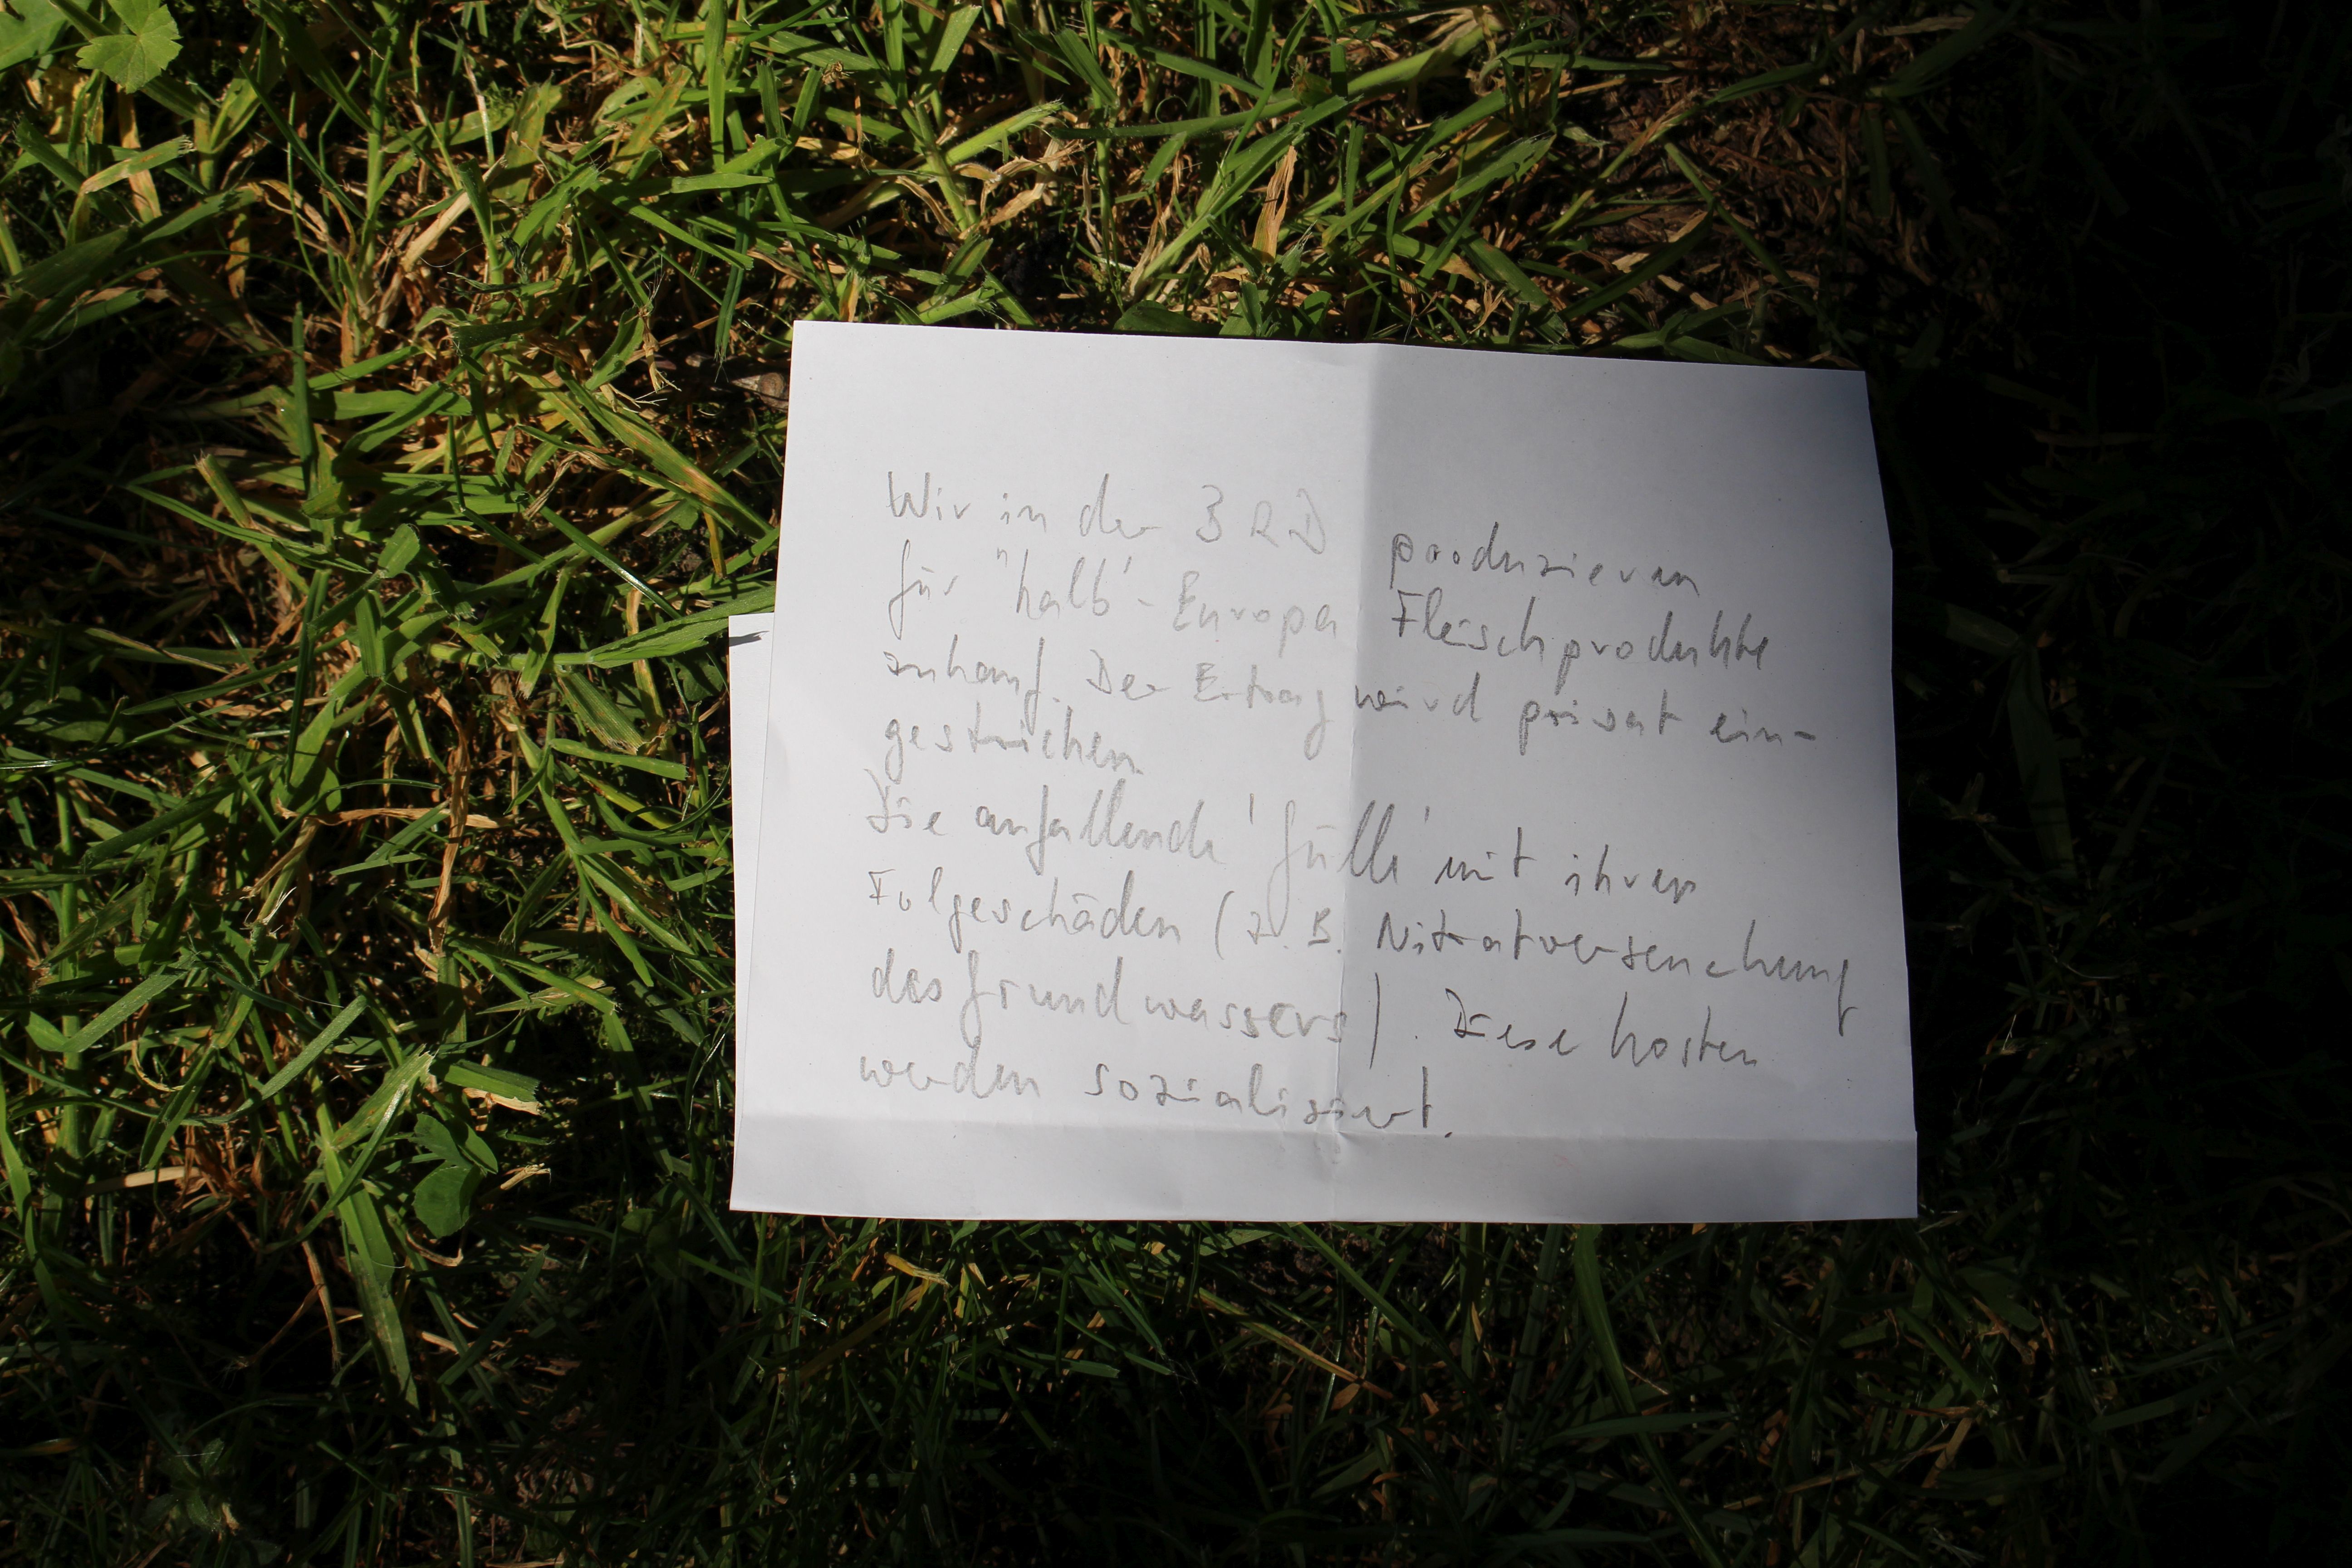 Wir in der BRD produzieren
für "halb"-Europa Fleischprodukte
zuhauf. Der Ertrag wird privat ein-
gestrichen.
Die anfallende 'Gülle' mit ihren
Folgeschäden (z. B. Nitratverseuchung
des Grundwassers). Diese Kosten
werden sozialisiert.